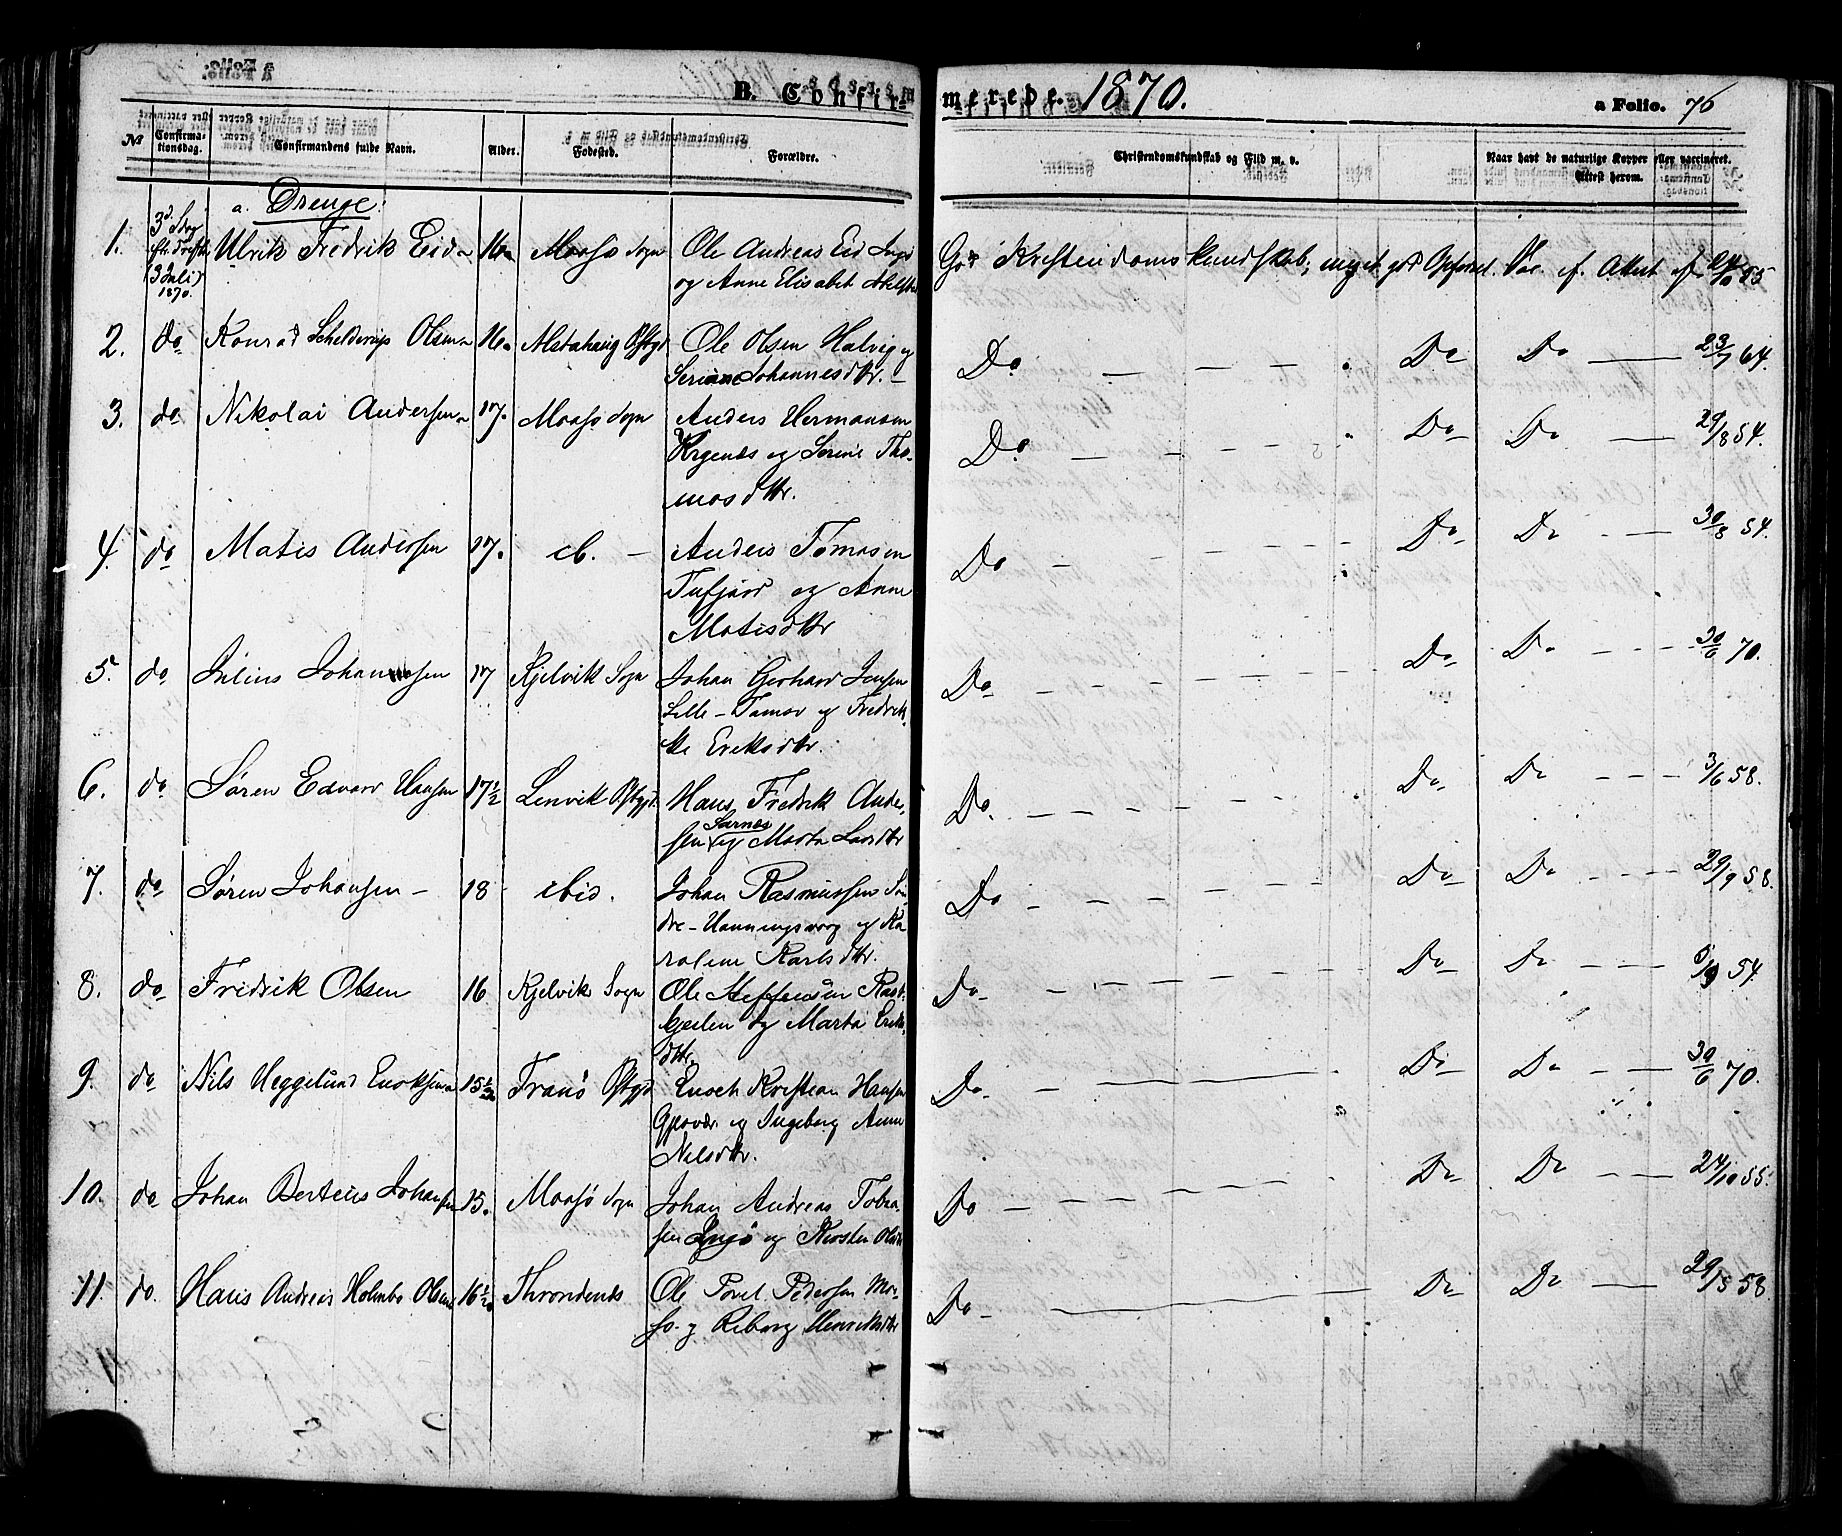 B. Confir-
merede. 1870.
a Folio. 76
№ Confirmationsdag. Confirmandens fulde Navn. Alder. Fødested. Forældre. Christendomskundskab og Flid m. v. Naar havt de naturlige Kopper eller vaccineret. Attest herom.
a. Drenge:
1. 3d. Sdag (3 Juli) 1870. Ulrik Fredrik Eid 16 Maasø Sogn Ole Andreas Eid Ingø God Kristendomskundskab, meget god Opførsel. Vac. ef. Attest af 24/10 55
og Anne Elisabet
2. do Konrad Schelderup Olsen 16. Alstahaug Pstgd Ole Olsen Halvig og Do — — — Do Do — 23/7 64.
Serine Johannesdtr. —
3. do Nikolai Andersen 17. Maasø Sogn Anders Hermansen Do — — — Do Do — 29/8 54.
og Serine Tho-
masdttr.
4. do Matis Andersen 17. ib. — Anders Tomasen Do — — — Do Do — 30/8 54.
Tufjord og Anne
Matisdttr
5. do Julius Johannesen 17 Kjelvik Sogn Johan Gerhard Jensen Do — — — Do Do — 30/6 70.
Lille-Tamsø og Fredrik-
ke Eriksdtr.
6. do Søren Edvard Hansen 17½ Lenvik Pstgd Hans Fredrik Ander- Do. — — — Do Do — 3/6 58.
sen Sarnæs og Marta Larsdttr
7. do Søren Johansen — 18 ibid. Johan Rasmussen Søn- Do — — — Do Do — 29/9 58.
dre-Honningsvaag og Ka-
roline Karlsdttr.
8. do Fredrik Olsen 16 Kjelvik Sogn Ole Steffensen Do — — — Do Do — 54.
og Marta Eriks-
dttr.
9. do Nils Heggelund Enoksen 15½ Tranø Pstgd Enoch Kristian Hansen Do — — — Do Do — 30/6 70.
Gjesvær og Ingeborg Anne
Nilsdttr.
10. do Johan Berteus Johansen 15. Maasø Sogn Johan Andreas Tobia- Do — — — Do Do — 24/10 55.
sen Ingø og Kirsten Olsdtr
11. do. Hans Andreas Holmbo Olsen 16½ Throndenæs Ole Povel Pedersen Ma- Do — — — Do Do — 29/5 58.
sø. og Reborg Henriksdttr